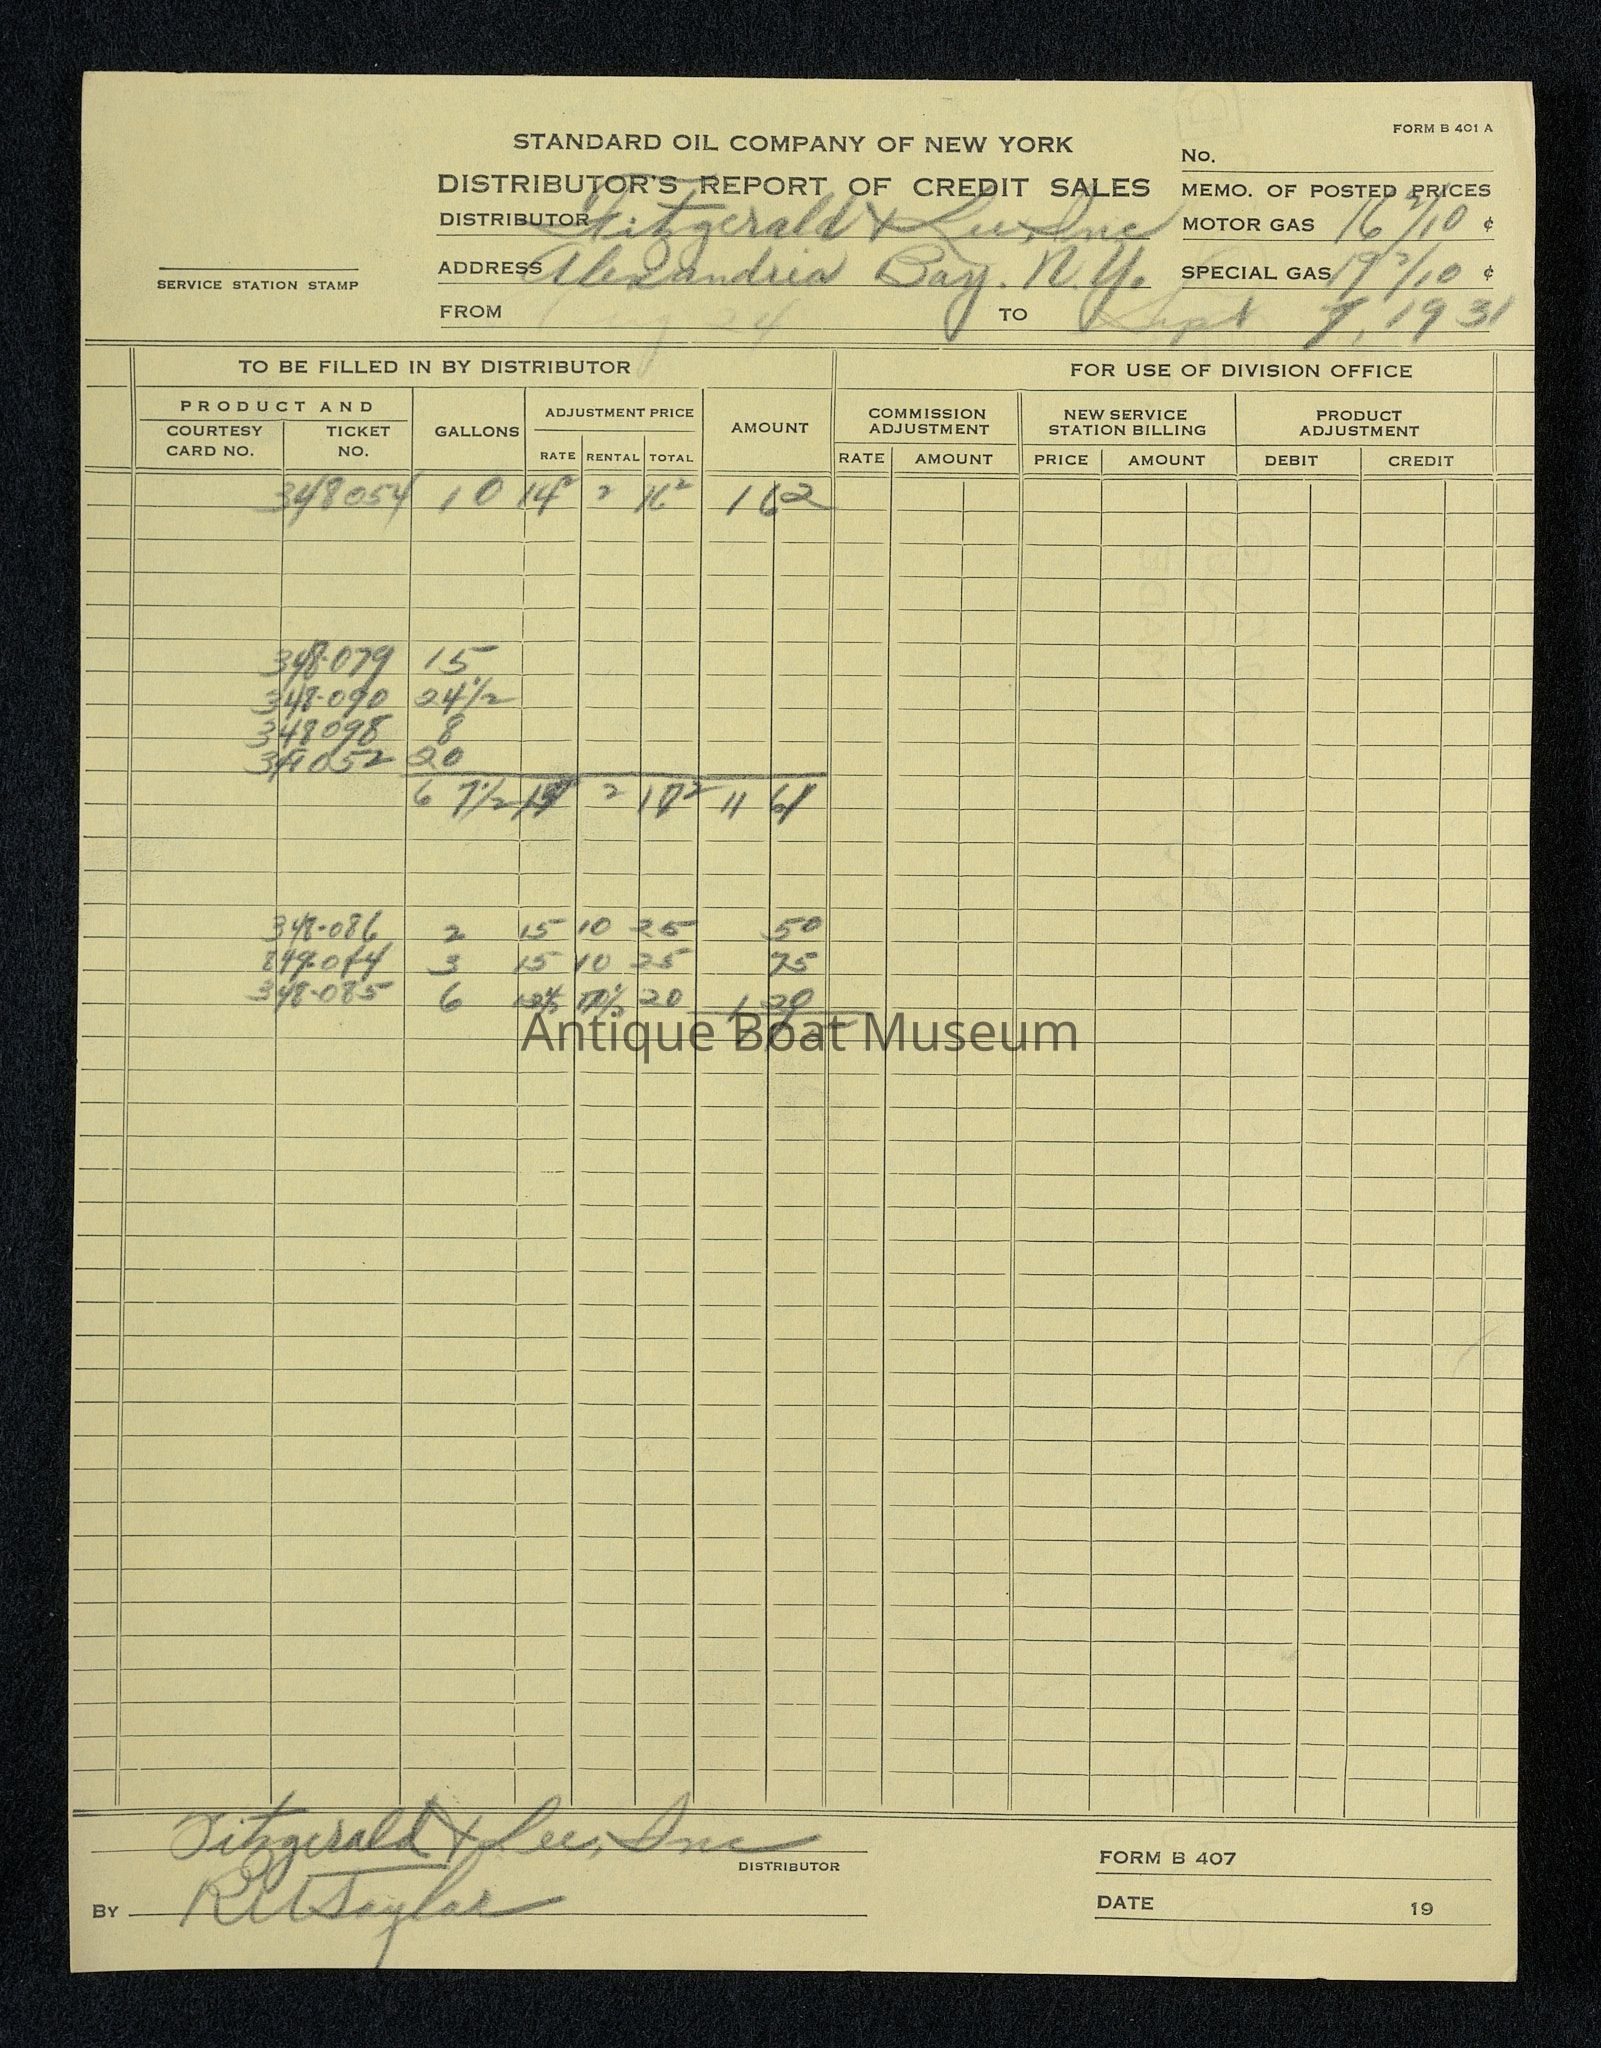 FORM B 401 A
STANDARD OIL COMPANY OF NEW YORK
No.
DISTRIBUTOR'S REPORT OF CREDIT SALES
MEMO. OF POSTED PRICES
DISTRIBUTOR Fitzgerald & Lee, Inc
MOTOR GAS 16 2/10 ¢
ADDRESS Alexandria Bay, N.Y.
SPECIAL GAS 19 2/10 ¢
SERVICE STATION STAMP
FROM 24 TO Sept 7, 1931
TO BE FILLED IN BY DISTRIBUTOR FOR USE OF DIVISION OFFICE
PRODUCT AND GALLONS ADJUSTMENT PRICE AMOUNT COMMISSION ADJUSTMENT NEW SERVICE STATION BILLING PRODUCT ADJUSTMENT
COURTESY CARD NO. TICKET NO. RATE RENTAL TOTAL RATE AMOUNT PRICE AMOUNT DEBIT CREDIT
348054 10 14² 2 16² 1 62
348-079 15
348-090 24 1/2
348098 8
20
67 1/2 2 17² 11 61
348-086 2 15 10 25 50
3 15 10 25 75
348-085 6 20 1 20
Antique Boat Museum
Fitzgerald & Lee, Inc
DISTRIBUTOR
FORM B 407
BY
DATE 19